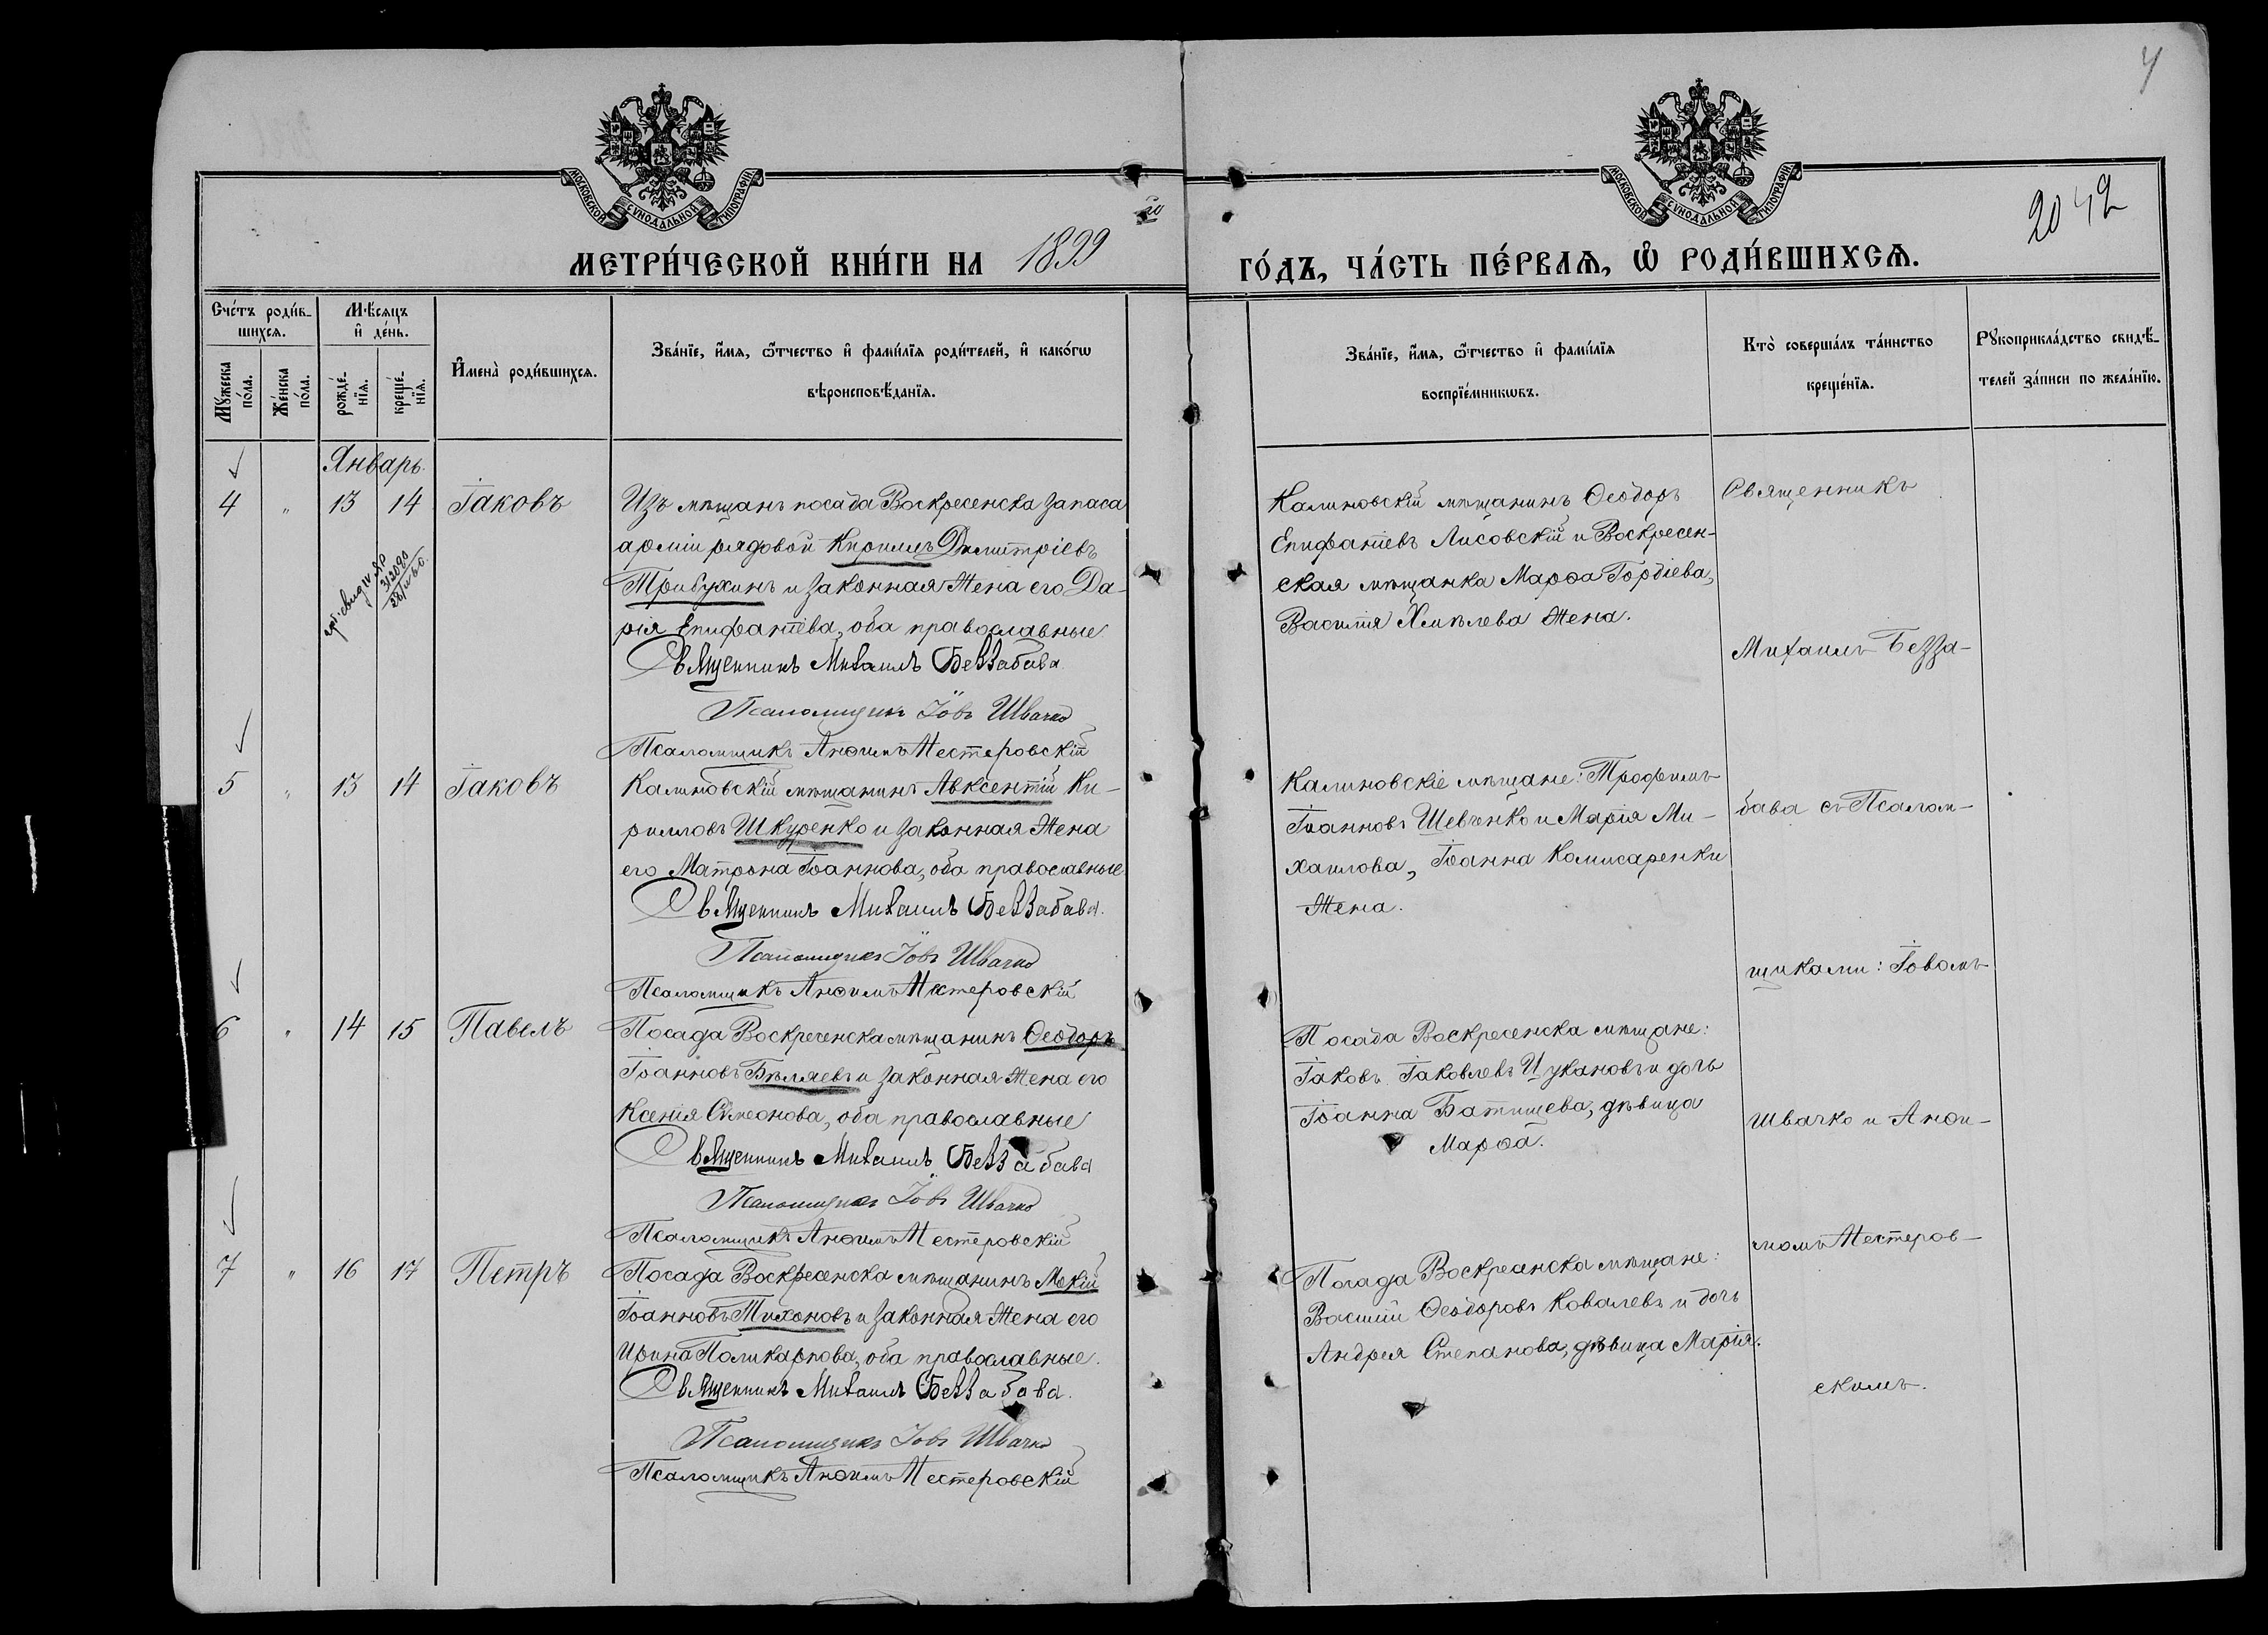 4
МОСКОВСКОЙ СѴНОДАЛЬНОЙ ТИПОГРАФІИ
МОСКОВСКОЙ СѴНОДАЛЬНОЙ ТИПОГРАФІИ
20 42
МЕТРИ́ЧЕСКОЙ КНИ́ГИ НА 1899 го
ГО́ДЪ, ЧА́СТЬ ПЕ́РВАѦ, Ѡ҆ РОДИ́ВШИХСѦ.
Сче́тъ роди́в-
шихсѧ.
Мꙋ́жеска
по́ла.
Же́нска
по́ла.
Мѣ́сѧцъ
и҆ де́нь.
рожде́-
нїѧ.
креще́-
нїѧ.
И҆мена̀ роди́вшихсѧ.
Зва́нїе, и҆́мѧ, ѻ҆́тчество и҆ фами́лїѧ роди́телей, и҆ како́гѡ
вѣроисповѣ́данїѧ.
Зва́нїе, и҆́мѧ, ѻ҆́тчество и҆ фами́лїѧ
воспрїе́мникѡвъ.
Кто̀ соверша́лъ та́инство
креще́нїѧ.
Рꙋкоприкла́дство свидѣ́-
телей за́писи по жела́нїю.
Январь.
4 " 13 14 Іаковъ
Изъ мѣщанъ посада Воскресенска запаса
арміи рядовой Кириллъ Димитріевъ
Трибухинъ и законная жена его Да-
рія Епифаніева, оба православные
Священникъ Михаилъ Беззабава
Псаломщикъ Іовъ Швачко
Псаломщикъ Анѳимъ Нестеровскій
Калиновскій мѣщанинъ Ѳеодоръ
Епифаніевъ Лисовскій и Воскресен-
ская мѣщанка Марѳа Гордіева,
Василія Хмѣлева жена.
5 " 13 14 Іаковъ
Калиновскій мѣщанинъ Авксентій Ки-
рилловъ Шкуренко и законная жена
его Матрона Іоаннова, оба православные
Священникъ Михаилъ Беззабава.
Псаломщикъ Іовъ Швачко
Псаломщикъ Анѳимъ Нестеровскій
Калиновскіе мѣщане: Трофимъ
Іоанновъ Шевченко и Марія Ми-
хаилова, Іоанна Комисаренки
жена.
6 " 14 15 Павелъ
Посада Воскресенска мѣщанинъ Ѳеодоръ
Іоанновъ Бѣляевъ и законная жена его
Ксенія Симеонова, оба православные
Священникъ Михаилъ Беззабава
Псаломщикъ Іовъ Швачко
Псаломщикъ Анѳимъ Нестеровскій
Посада Воскресенска мѣщане:
Іаковъ Іаковлевъ Цукановъ и дочь
Іоанна Батищева, дѣвица
Марѳа.
7 " 16 17 Петръ
Посада Воскресенска мѣщанинъ Мокій
Іоанновъ Тихоновъ и законная жена его
Ирина Поликарпова, оба православные.
Священникъ Михаилъ Беззабава.
Псаломщикъ Іовъ Швачко
Псаломщикъ Анѳимъ Нестеровскій
Посада Воскресенска мѣщане:
Василій Ѳеодоровъ Ковалевъ и дочь
Андрея Степанова, дѣвица Марія.
Священникъ
Михаилъ Безза-
бава съ Псалом-
щиками: Іовомъ
Швачко и Анѳи-
момъ Нестеров-
скимъ.